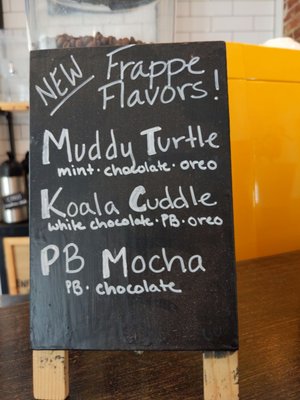 NEW Frappe
Flavors!
Muddy Turtle
mint · chocolate · oreo
Koala Cuddle
white chocolate · PB · oreo
PB Mocha
PB · chocolate